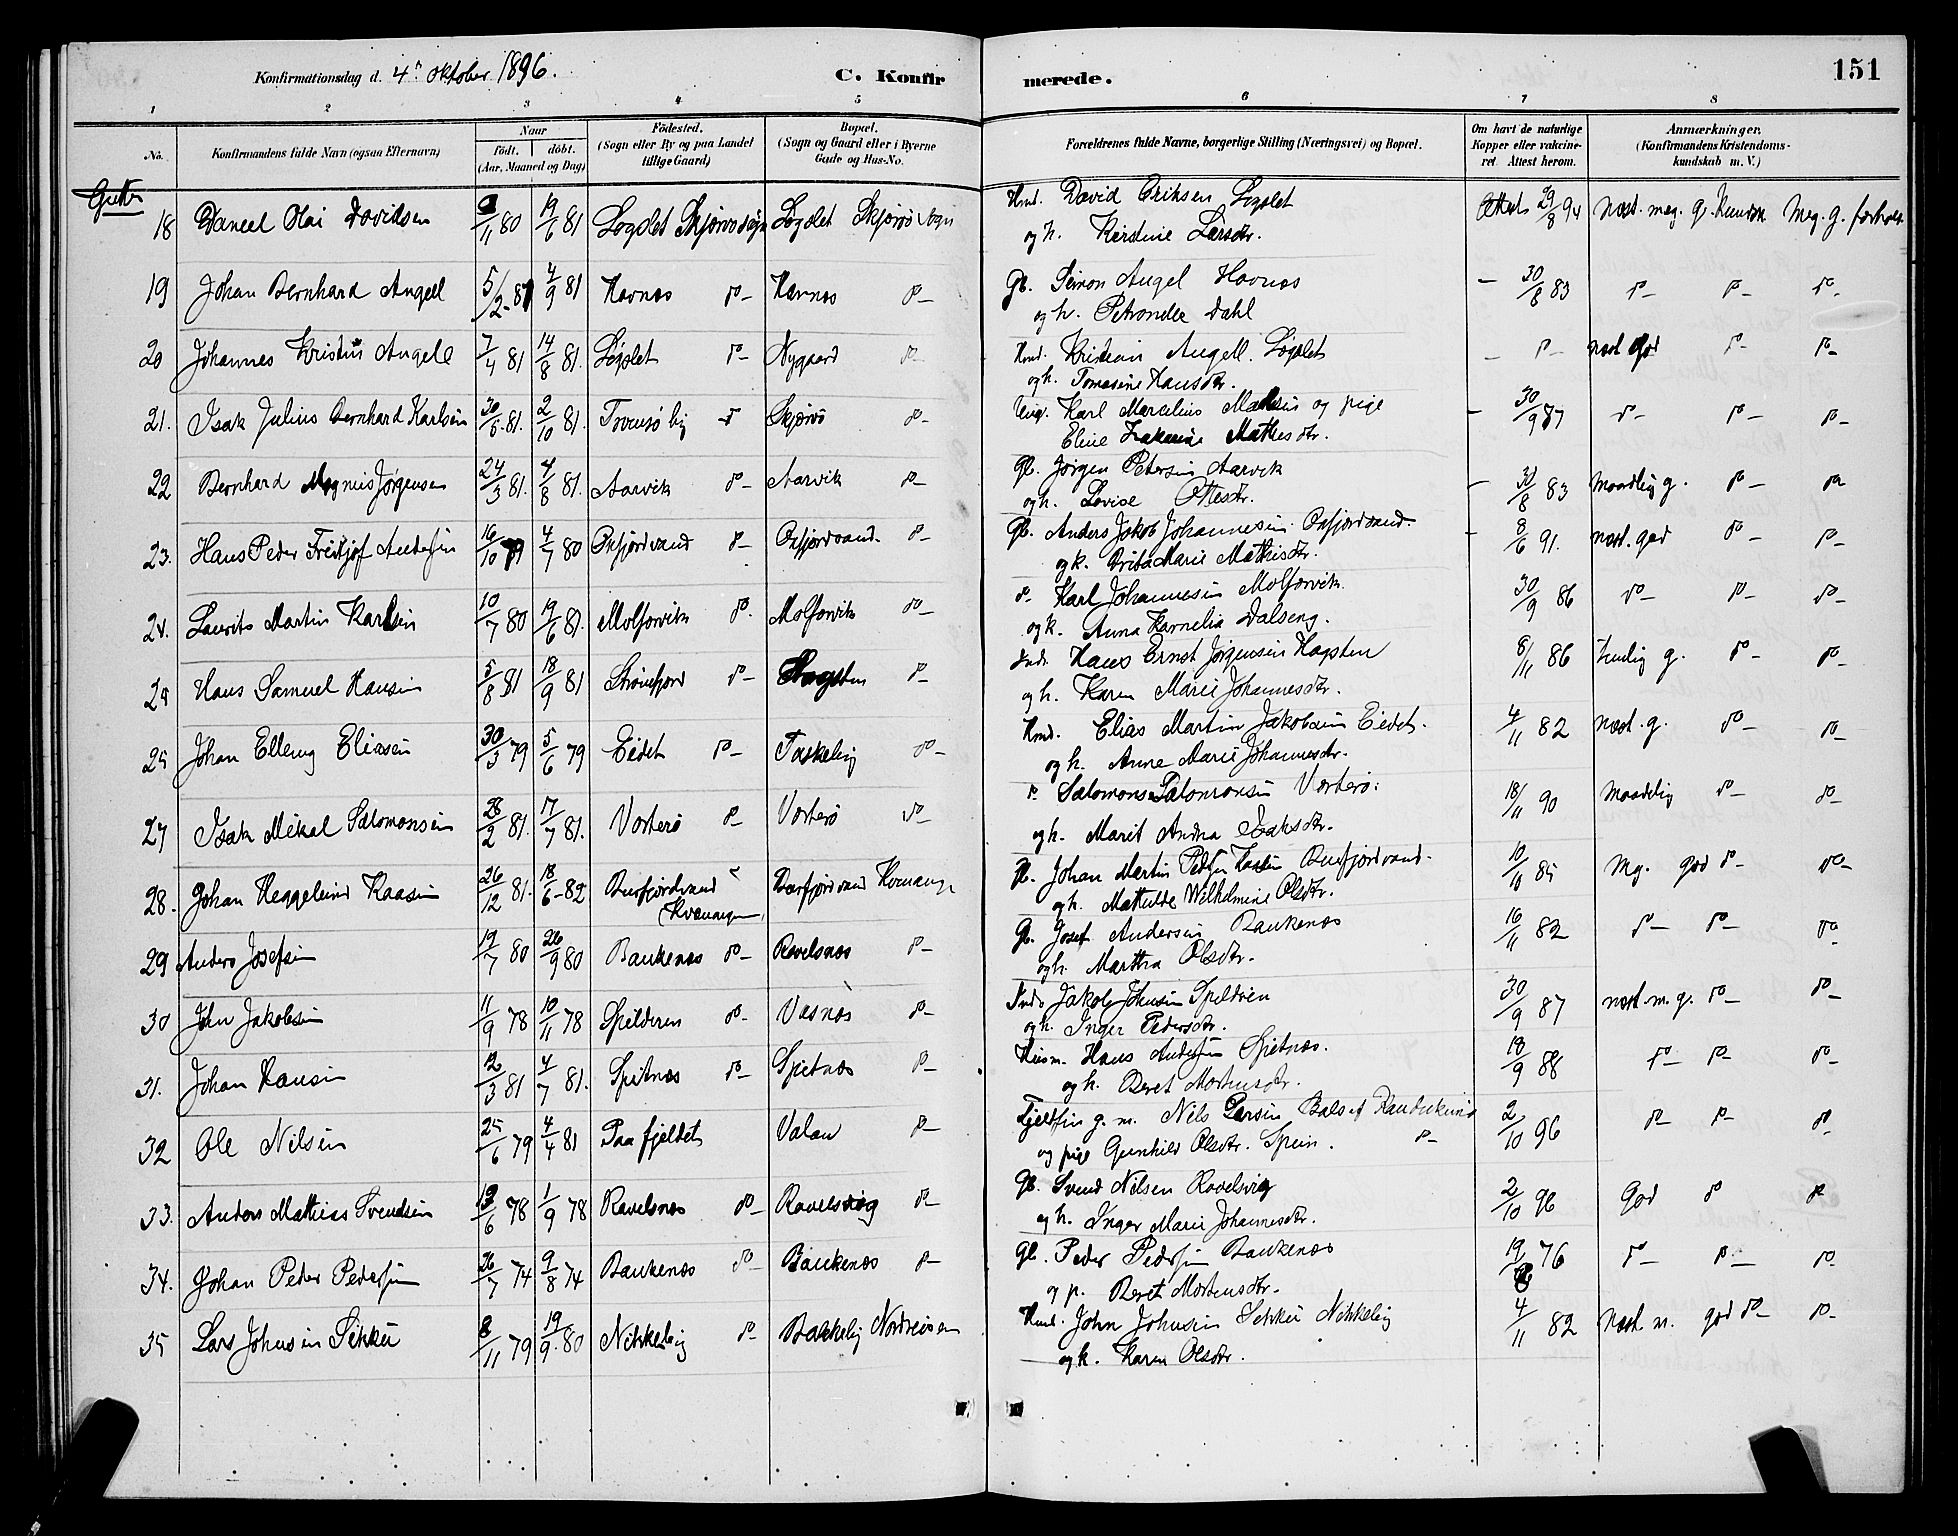 Konfirmationsdag d. 4de Oktober 1896.
C. Konfirmerede.
151
1 2 3 4 5 6 7 8
No.
Konfirmandens fulde Navn (ogsaa Efternavn)
Naar
født. døbt.
(Aar, Maaned og Dag)
Fødested.
(Sogn eller By og paa Landet
tillige Gaard)
Bopæl.
(Sogn og Gaard eller i Byerne
Gade og Hus-No.
Forældrenes fulde Navne, borgerlige Stilling (Næringsvei) og Bopæl.
Om havt de naturlige
Kopper eller vakcine-
ret. Attest herom.
Anmærkninger.
(Konfirmandens Kristendoms-
kundskab m. V.)
Gutter
18 Daneel Olai Davidsen /11 80 19/6 81 Løgslet Skjervø sogn Løgslet Skjervø Sogn Kmd. David Eriksen Løgslet Attest 29/8 94 Næst. meg. g. Kundsk. Meg. g. forhold
og h. Kirstine Larsdtr.
19 Johan Bernhard Angell 5/2 81 4/9 81 Havnæs do Havnæs do Gb. Simon Angel Havnæs - 30/8 83 do do do
og h. Petronelle Dahl
20 Johannes Kristin Angell 7/4 81 14/8 81. Løgslet do Nygaard do Kmd. Kristian Angell. Løgslet - do næst god do do
og h. Tomasine Hansdtr.
21. Isak Julius Bernhard Karlsen 30/6 81. 2/10 81. Tromsø by do Skjervø do Ung. Karl Marcelius Madsen og pige - 30/9 77 do do do
Eline Mathisdtr.
22 Bernhard Magnus Jørgensen 24/3 81. 4/8 81. Aarvik do Aarvik do Gb. Jørgen Petersen Aarvik - 30/8 83 maadelig g. do do
og h. Lovise Ottesdtr.
23. Hans Peder Fridtjof Andersen 16/10 79 4/7 80 Oxfjordvand do Oxfjordvand do Gb. Anders Jakob Johannesen Oxfjordvand - 8/6 91. næst. god do do
og k. Marie Mathisdtr.
24. Laurits Martin Karlsen 10/7 80 19/6 81. Molforvik do. Molforvik do do Karl Johannesen Molforvik 30/9 86 do do do
og k. Anna Karnelia Dalseng.
25 Hans Samuel Hansen 5/8 81 18/9 81 Straumfjord do Hagsten do Inds. Hans Ernst Jørgensen Hagsten 8/11 86 temlig g. do do
og h. Karen Marie Johannesdtr.
25 Johan Elleng Eliasen 30/3 79 5/6 79 Eidet do Taskeby do Kmd. Elias Martin Jakobsen Eidet. 4/11 82 næst. g. do do
og h. Anne Marie Johannesdtr.
27 Isak Mikal Salomonsen 28/2 81. 17/7 81. Vorterø do Vorterø do do Salomon Salomonsen Vorterø. 18/11 90 maadelig do do
og h. Marit Andrea Isaksdtr.
28. Johan Heggelund Kaasen 26/12 81. 18/6 82 Burfjordvand Burfjordvand Kvænangen Gb. Johan Martin Burfjordvand. 10/10 85 Mg. god do do
(Kvænangen) og h. Mathilde Wilhelmine Olsdtr.
29 Anders Josefsen 19/7 80 26/9 80 Baukenæs do Ravelsnæs do Gb. Josef Andersen Baukenæs 16/11 82 do do do
og h. Martha Olsdtr.
30 John Jakobsen 11/9 78 10/11 78 Spilderen do Vasnæs do Inds Jakob Johnsen Spildren 30/9 87 næst. m. g. do do
og h. Inger Pedersdtr.
31. Johan Hansen 12/3 81 4/7 81. Spitnæs do Spitnæs do Husm. Hans Andersen Spitnæs. 18/9 88 do do do
og h. Beret Mortensdtr.
32 Ole Nilsen 25/6 79 4/4 81 Paa fjeldet Valan do Fjeldfin g. m. Nils Larsen Bals af Kautokeino 2/10 96 do do do
og pige Gunhild Olsdtr. Spein. do
33. Anders Mathias Svendsen 13/6 78 1/9 78 Ravelsnæs do Ravelsvog do Gb. Svend Nilsen Ravelsvig 2/10 96 God do do
og h. Inger Marie Johannesdtr.
34. Johan Peder Pedersen 26/7 74 9/8 74 Baukenæs do Baukenæs do Gb. Peder Pedersen Baukenæs 19/ 76 do do do
og p. Beret Mortensdtr.
35 Lars Johnsen Sikku 8/11 79 19/9 80 Nikkeby do Bakkeby Nordreisen Kmd. John Johnsen Sikku Nikkeby 4/11 82 Næst. m. god do do
og k. Karen Olsdtr.